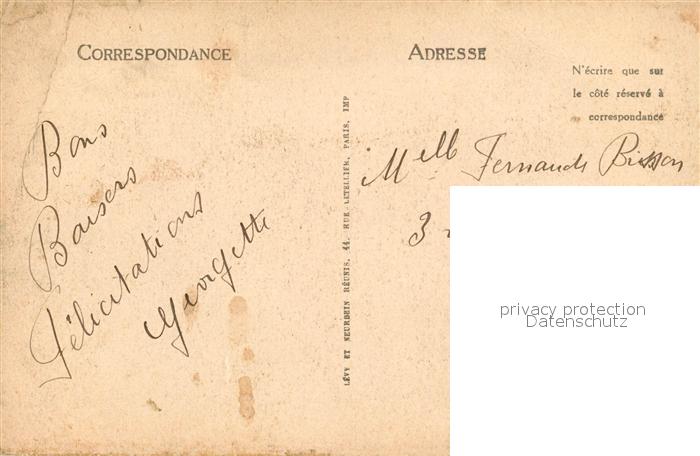 CORRESPONDANCE
ADRESSE
N'écrire que sur
le côté réservé à
correspondance
Bons
Baisers
Félicitations
Georgette
LÉVY ET NEURDEIN RÉUNIS, 44, RUE LETELLIER, PARIS, IMP
Melle Fernande Brisson
3
privacy protection
Datenschutz